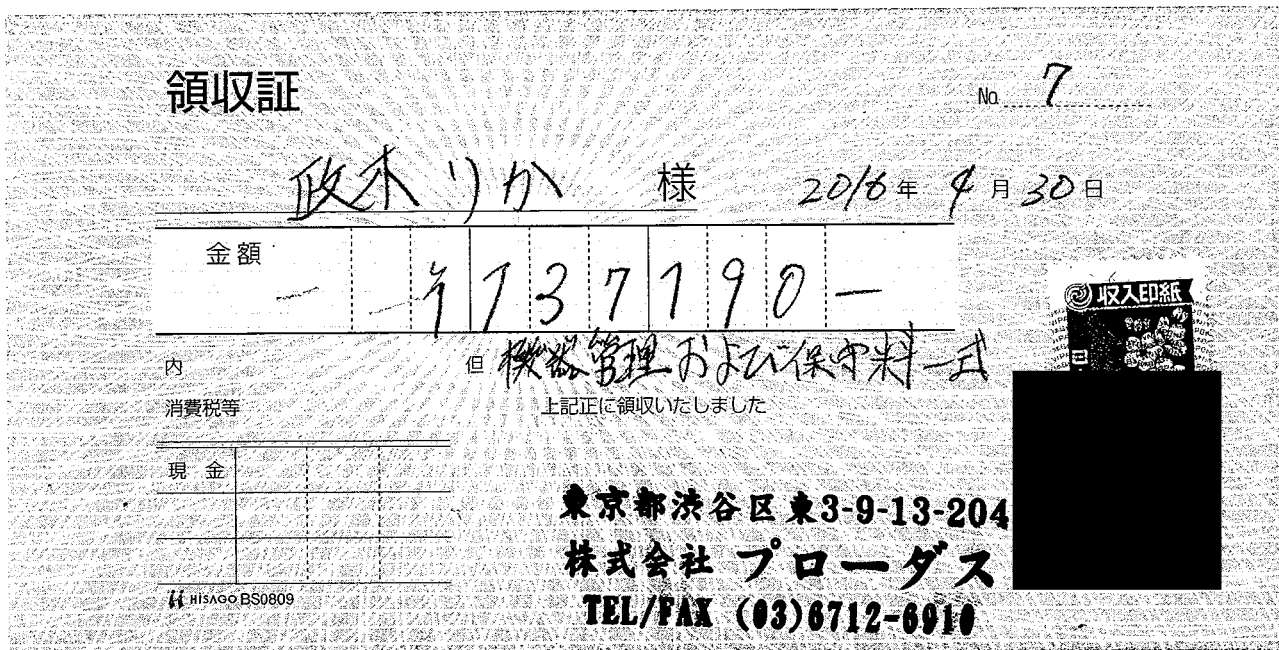 領収証
No. 7
政木りか 様
2016年 4月30日
金額
¥1137190-
内
但 機器管理および保守料一式
消費税等
上記正に領収いたしました
収入印紙
現金
東京都渋谷区東3-9-13-204
株式会社 プローダス
TEL/FAX (03)6712-6910
HISAGO BS0809